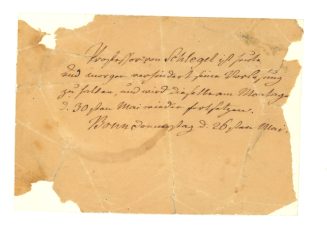 Professor von Schlegel ist heute
und morgen verhindert seine Vorlesung
zu halten, und wird dieselbe am Montage
d. 30sten Mai wieder fortsetzen.
Bonn Donnerstag d. 26sten Mai